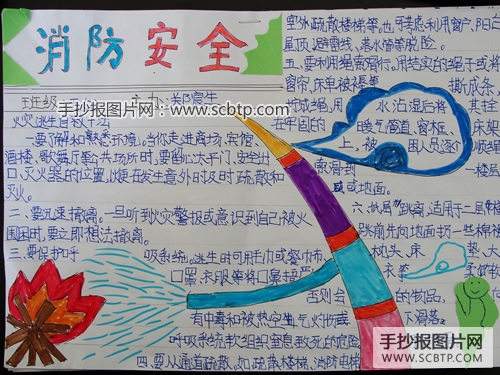 消防安全
班级 主办:郑震生
火灾逃生自救方法
一要了解和熟悉环境。当你走进商场、宾馆、
酒楼、歌舞厅等公共场所时,要留心太平门、安全出
口、灭火器的位置,以便在发生意外时及时疏散和
灭火。
二、要迅速撤离。一旦听到火灾警报或意识到自己被火
围困时,要立即想法撤离。
三、要保护呼吸系统。逃生时可用毛巾或餐巾布、
口罩、衣服等将口鼻捂严
否则会
有中毒和被热空气灼伤
呼吸系统软组织窒息致死的危险
四、要从通道疏散。如疏散楼梯、消防电梯
室外疏散楼梯等,也可考虑利用窗户、阳台
屋顶、避雷线、落水管等脱险。
五、要利用绳索滑行。用结实的绳子或将
窗帘、床单被褥等撕成条,
拧成绳,用水沾湿后将
在牢固的暖气管道、窗框、床
上,被困人员逐
索滑到一楼层
或地面。
六、低层跳离,适用于二层
跳前先向地面扔一些棉被
枕头、床垫、大
衣等
的物品,
下滑落。
手抄报图片网
www.scbtp.com
手抄报图片网
WWW.SCBTP.COM